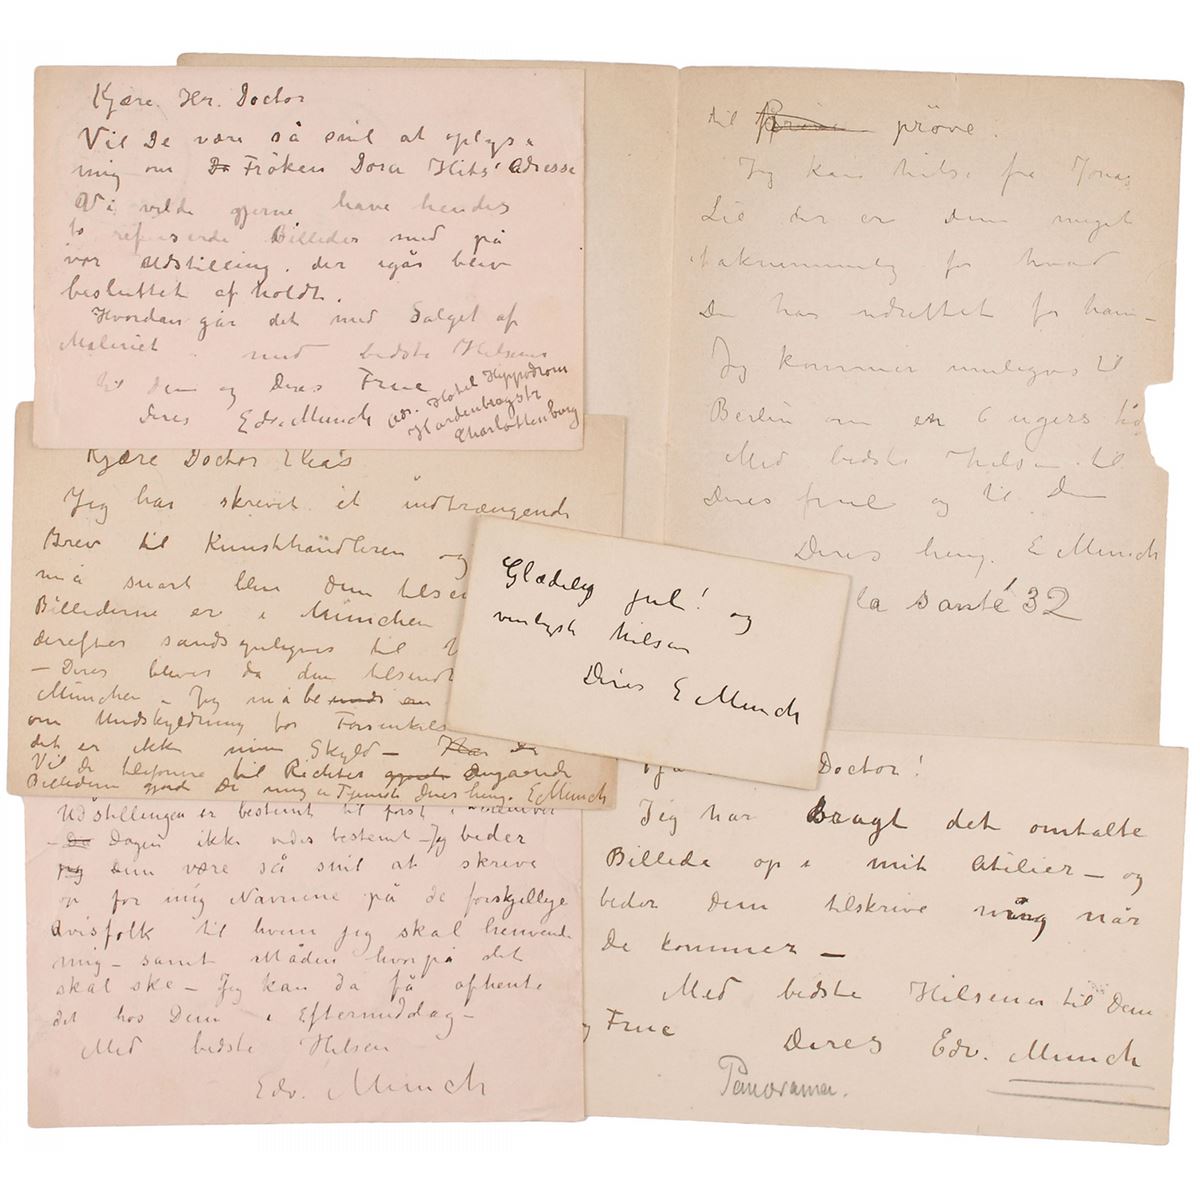 Kjære Hr. Doctor
Vil De være så snil at oplyse
mig om Frøken Dora Hitz' Adresse
Vi vilde gjerne have hendes
to refuserde Billeder med på
vor Udstilling, der igår blev
besluttet afholdt.
Hvordan går det med Salget af
Maleriet. med bedste Hilsener
til Dem og Deres Frue
Deres Edv. Munch
Adr. Hotel Hippodrom
Hardenbergstr
Charlottenburg
til prøve.
Jeg kan hilse fra Jonas
Lie der er Dem meget
taknemmelig for hvad
De har udrettet for ham –
Jeg kommer muligvis til
Berlin om en 6 ugers tid
Med bedste Hilsen til
Deres frue og til Dem
Deres heng. E Munch
la Santé 32
Kjære Doctor Elias
Jeg har skrevet et indtrængende
Brev til Kunsthändleren og
må snart blive Dem
Billederne er i München
derefter sandsynligvis til
– Deres bliver da dem tilsendt
München – Jeg må be
om Undskyldning for
det er ikke min Skyld –
Vil De telefonere til Richter angaaende
Billederne gjorde De mig en Tjeneste Deres heng. E Munch
Glædelig jul! og
venligste hilsen
Deres E Munch
Udstillingen er bestemt til først i
Dagen ikke vides bestemt – Jeg beder
Dem være så snil at skrive
op for mig Navnene på de forskjellige
Avisfolk til hvem jeg skal henvende
mig – samt Måden hvorpå det
skal ske – Jeg kan da få afhente
det hos Dem i Eftermiddag –
Med bedste Hilsen
Edv. Munch
Doctor!
Jeg har Bragt det omtalte
Billede op i mit Atelier – og
beder Dem tilskrive mig når
De kommer –
Med bedste Hilsener til Dem
og Frue
Deres Edv. Munch
Panorama.